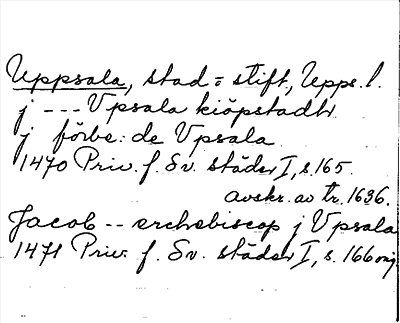 Uppsala, stad = stift, Upps. l.
j --- Vpsala kiöpstadhr
j förbe: de Vpsala
1470 Priv. f. Sv. städer I, s. 165.
avskr. av tr. 1636.
Jacob -- erchebiscop j Vpsala
1471 Priv. f. Sv. städer I, s. 166 orig.